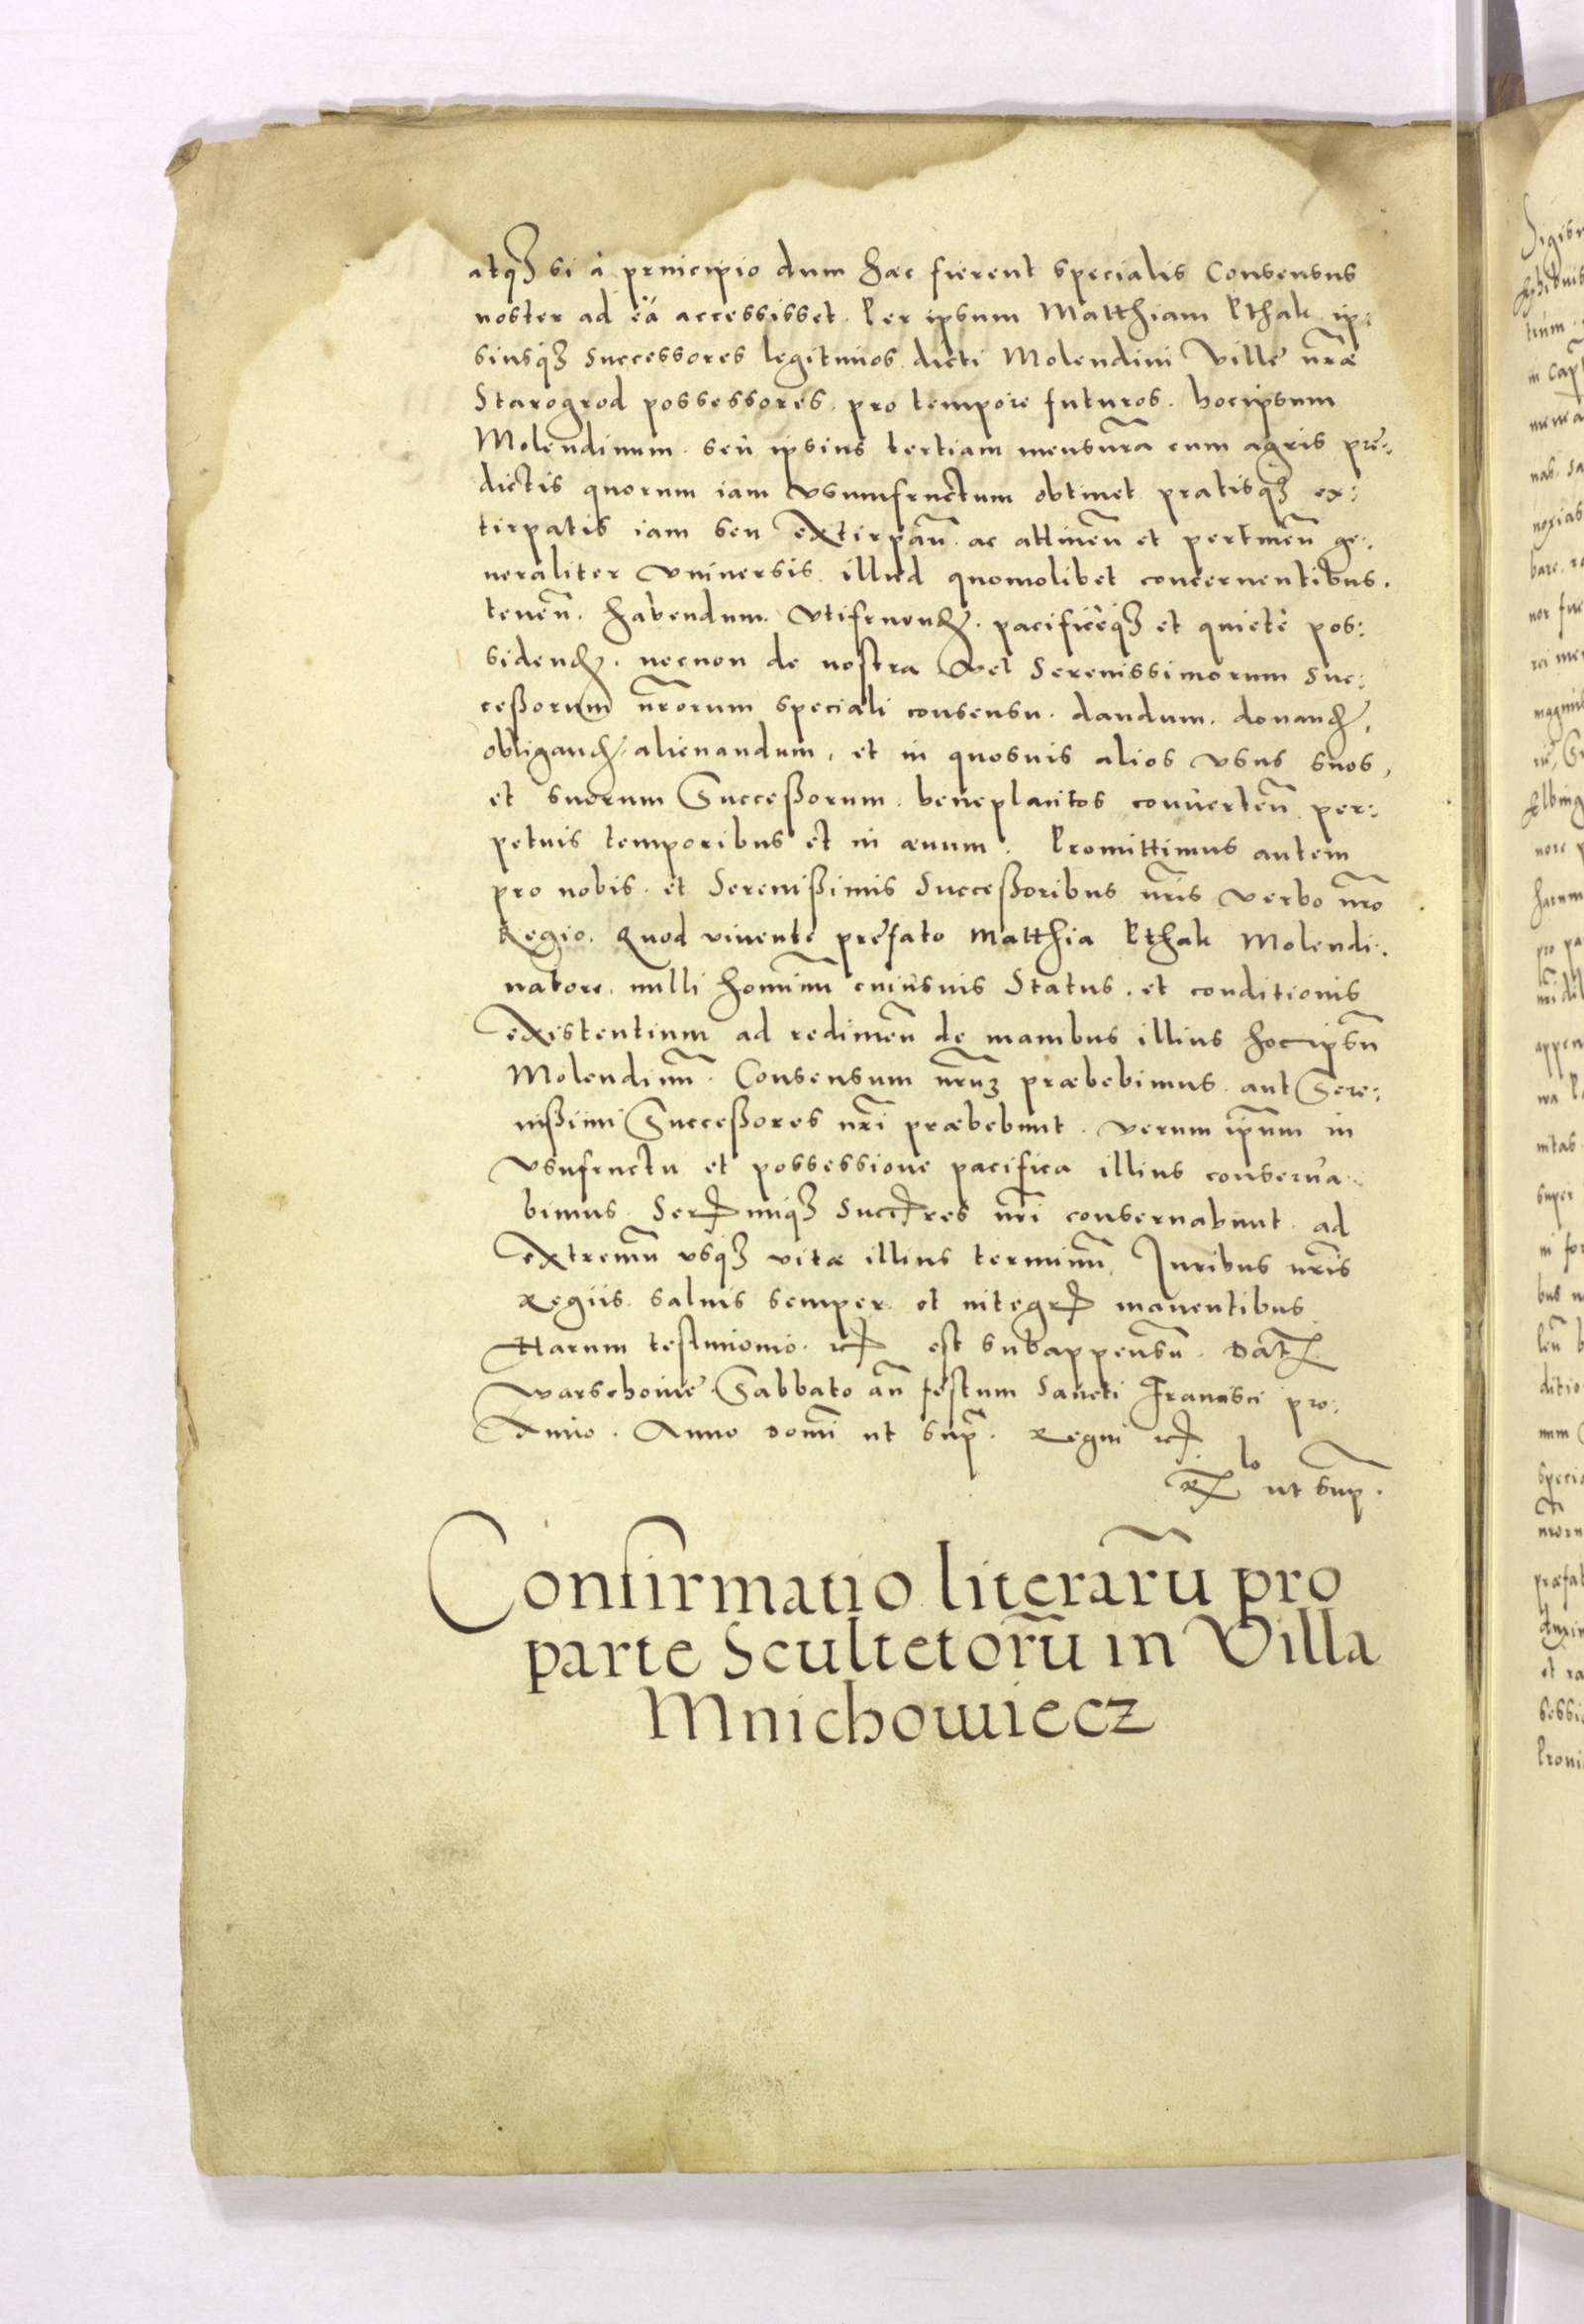 atqȝ si à principio dum hæc fierent specialis Consensus
noster ad eä accessisset. Per ipsum Matthiam Pthak ip:
siusqȝ successores legitimos dicti Molendini Ville nr̃æ
Starogrod possessores. pro tempore futuros. hocipsum
Molendinum. seu ipsius tertiam mensurã cum agris præ:
dictis quorum iam vsumfructum obtinet pratisqȝ ex:
tirpatis iam seu extirpañ. ac attineñ et pertineñ ge:
neraliter vniuersis. illud quomolibet concernentibus.
teneñ. habendum. vtifruend. pacificèqȝ et quietè pos:
sidend. necnon de nostra vel Serenissimorum Suc:
ceßorum nr̃orum speciali consensu. dandum. donand,
obligand. alienandum, et in quosuis alios vsus suos,
et suorum Succeßorum. beneplacitos conuerteñ per:
petuis temporibus et in æuum. Promittimus autem
pro nobis. et Sereniſsimis Succeßoribus nr̃is verbo nr̃o
Regio. Quod viuente præfato Matthia Pthak Molendi:
natore. nulli hominũ cuiusuis Status. et conditionis
existentium ad redimeñ de manibus illius hocipsũ
Molendinũ. Consensum nr̃uȝ præbebimus. aut Sere:
nißimi Succeßores nr̃i præbebunt. verum ip̃um in
vsufructu et possessione pacifica illius conserua:
bimus. Ser miqȝ Succres nr̃i conseruabunt. ad
extremũ vsqȝ vitæ illius terminũ. Iuribus nr̃is
Regiis. saluis semper. et integr manentibus
Harum testimonio. rc est subappensũ. Dat
Warschouiæ. Sabbato añ festum Sancti Francisci pro:
ximo. Anno Domĩ ut sup̃. Regni rc
Rlo ut sup̃.
Confirmatio literarũ pro
parte Scultetorũ in Villa
Mnichowiecz